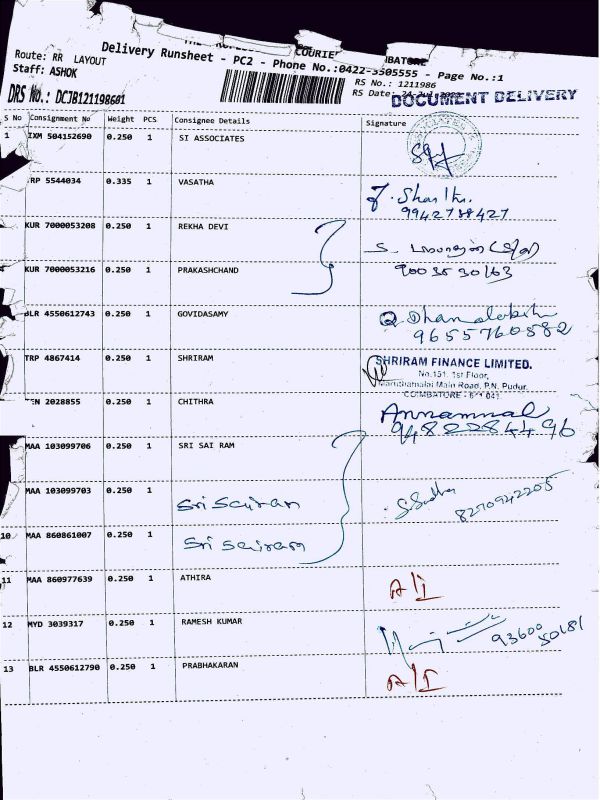 COURIE
BATORE
Delivery Runsheet - PC2 - Phone No.:0422-3505555 - Page No.:1
Route: RR LAYOUT
Staff: ASHOK
RS No.: 1211986
RS Date:
DRS No.: DCJB121198601
DOCUMENT DELIVERY
S No Consignment No Weight PCS Consignee Details Signature
1 IXM 504152690 0.250 1 SI ASSOCIATES
RP 5544034 0.335 1 VASATHA
9942788427
KUR 7000053208 0.250 1 REKHA DEVI
KUR 7000053216 0.250 1 PRAKASHCHAND
BLR 4550612743 0.250 1 GOVIDASAMY
9655760582
TRP 4867414 0.250 1 SHRIRAM
SHRIRAM FINANCE LIMITED.
No.151, 1st Floor,
Maruthamalai Main Road, P.N. Pudur,
COIMBATORE - 641 041.
EN 2028855 0.250 1 CHITHRA
Annammal
9482284496
MAA 103099706 0.250 1 SRI SAI RAM
MAA 103099703 0.250 1 Sri Sairam
S. Sudha
8270942205
10 MAA 860861007 0.250 1 Sri Sairam
11 MAA 860977639 0.250 1 ATHIRA A/I
12 MYD 3039317 0.250 1 RAMESH KUMAR 93600
50181
13 BLR 4550612790 0.250 1 PRABHAKARAN A/I